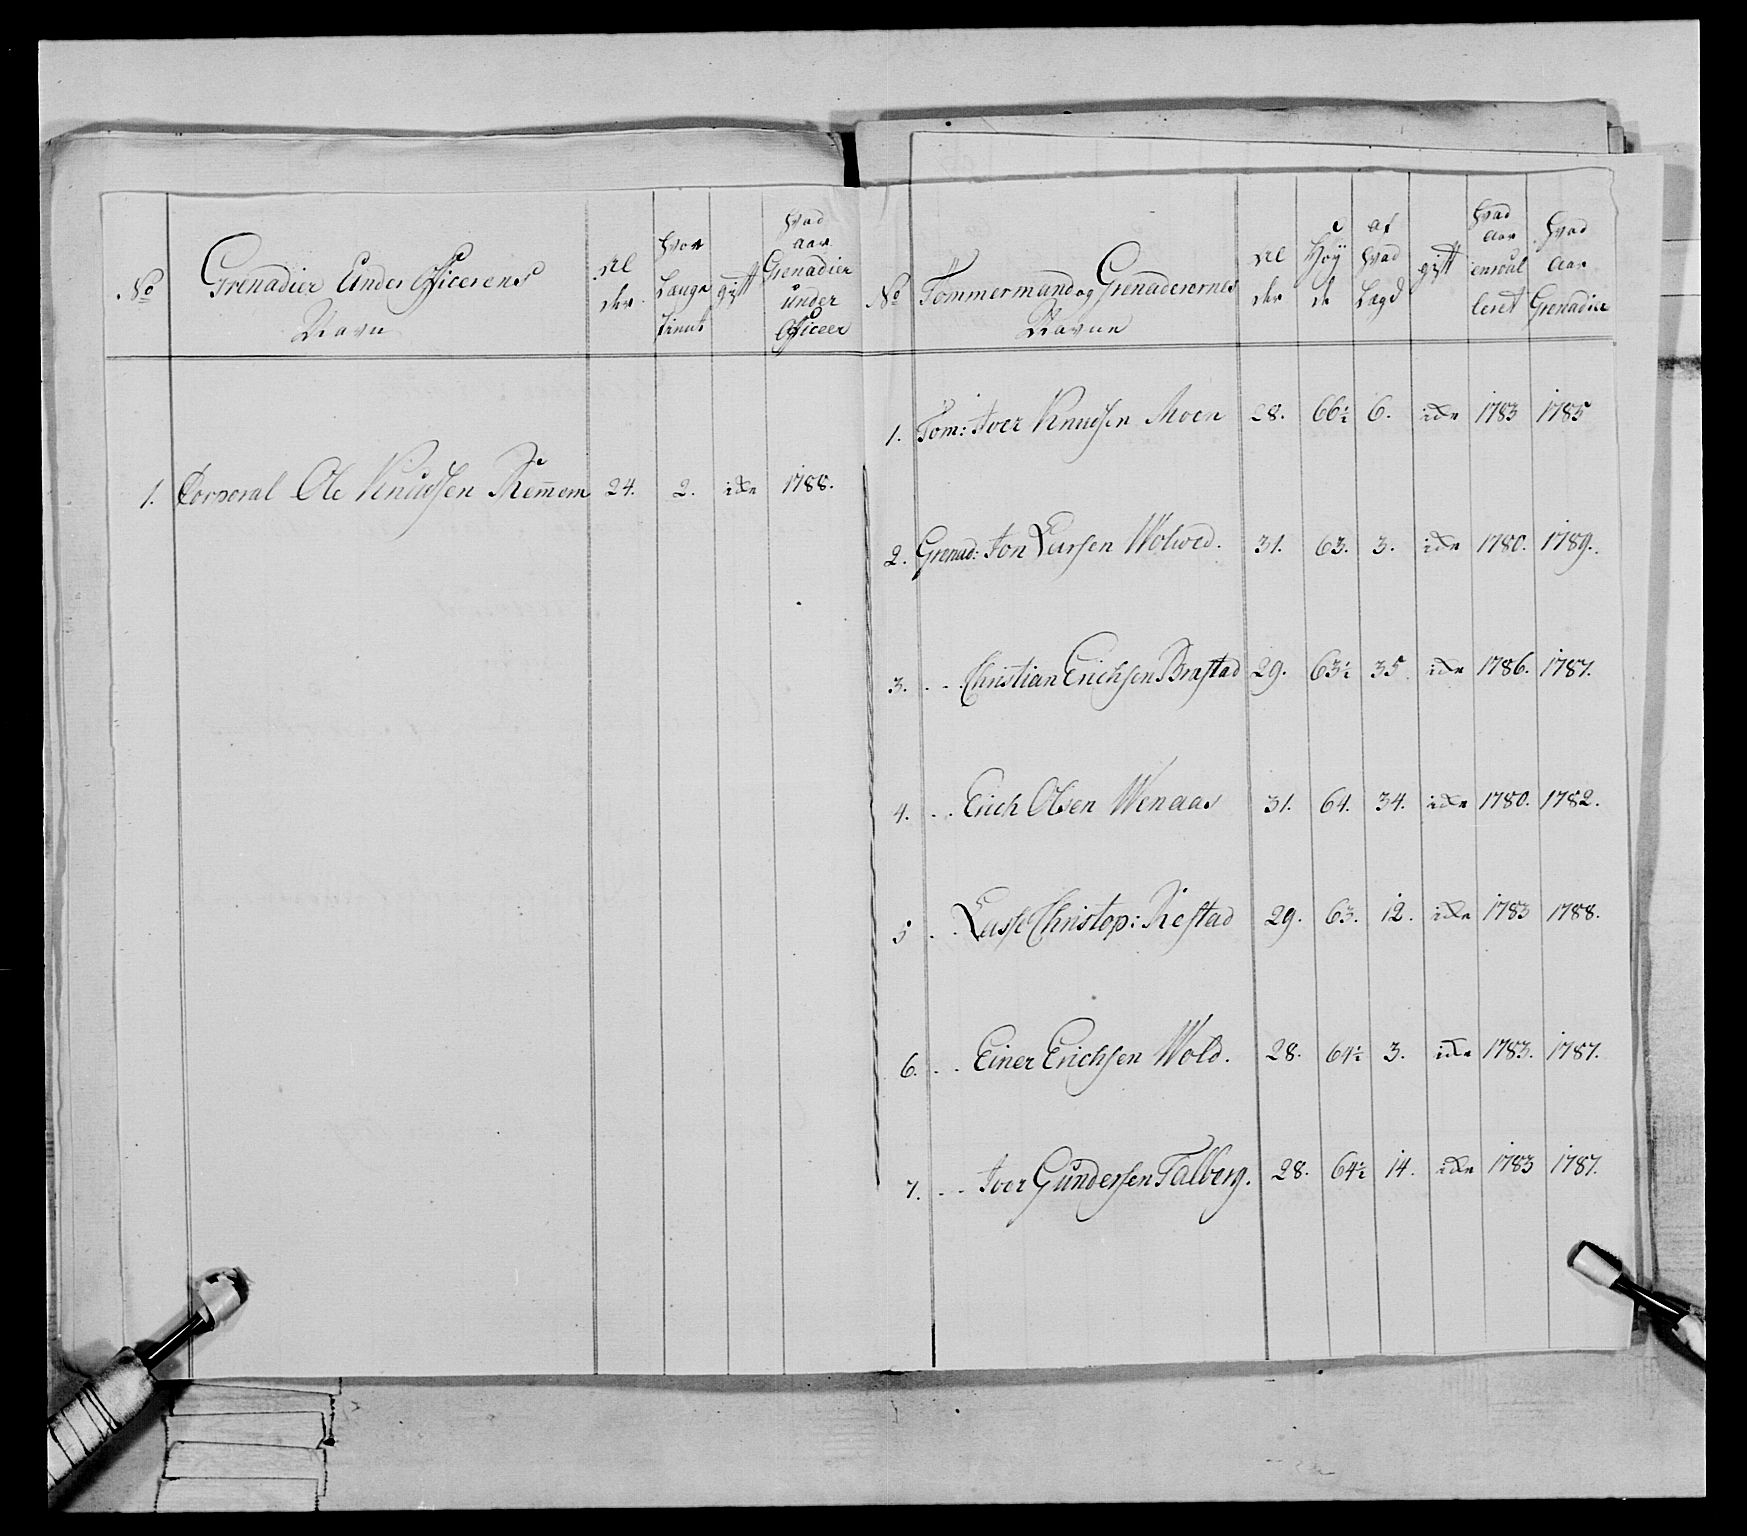 No
Grenadier Under Officerens
Navn
Al
der
hvor
Længe
tient
gift
hvad
aar
Grenadier
under
Officeer
1. Corporal Ole Knudsen Remmem 24. 2. ikke 1788.
No
Tömmermand og Grenaderernes
Navne
Al
der
Höy
de
af
hvad
Lægd
gift
hvad
aar
enroul
leret
hvad
aar
Grenadier
1. Tom: Iver Knudsen Moen 28. 66½ 6. ikke 1783 1785
2. Grenad: Jon Larsen Wolwed. 31. 63. 3. ikke 1780. 1789.
3. - - Christian Erichsen Brastad 29. 63½ 35. ikke 1786. 1787.
4. - - Erich Olsen Wenaas 31. 64. 34. ikke 1780. 1782.
5 - - Lasse Christop: Restad 29. 63. 12. ikke 1783 1788.
6. - - Einer Erichsen Wold. 28. 64½ 3. ikke 1783. 1787.
7. - - Iver Gundersen Talberg. 28. 64½ 14. ikke 1783 1787.